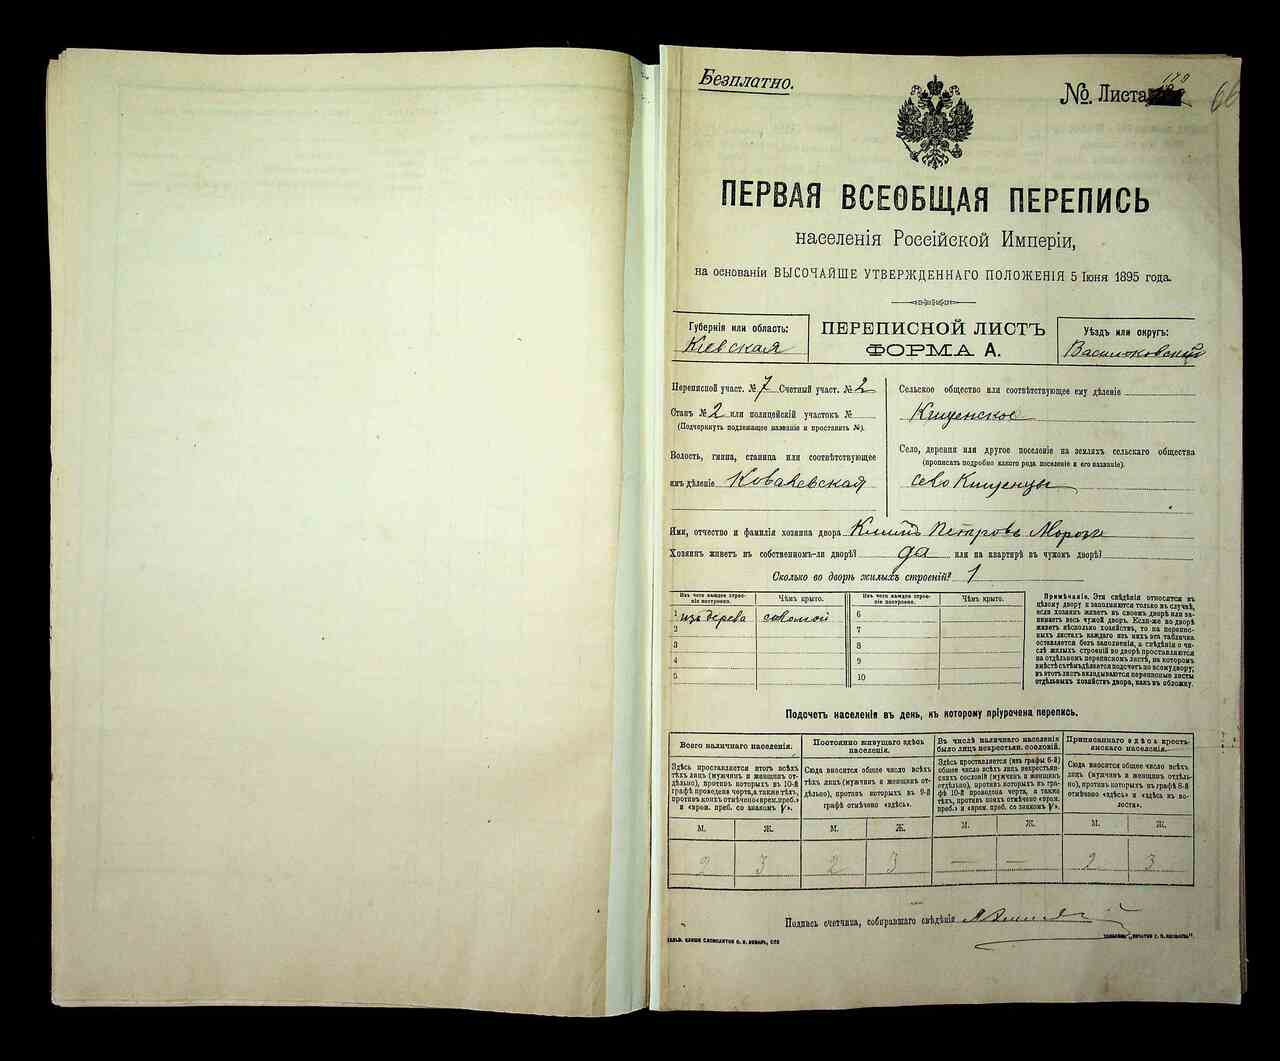 Безплатно.
№ Листа 179
66
ПЕРВАЯ ВСЕОБЩАЯ ПЕРЕПИСЬ
населенія Россійской Имперіи,
на основаніи ВЫСОЧАЙШЕ УТВЕРЖДЕННАГО ПОЛОЖЕНІЯ 5 Іюня 1895 года.
Губернія или область:
Кіевская
ПЕРЕПИСНОЙ ЛИСТЪ
ФОРМА А.
Уѣздъ или округъ:
Васильковскій
Переписной участ. № 7 Счетный участ. № 2
Станъ № 2 или полицейскій участокъ №
(Подчеркнуть подлежащее названіе и проставить №).
Волость, гмина, станица или соотвѣтствующее
имъ дѣленіе
Сельское общество или соотвѣтствующее ему дѣленіе
Кищенское
Село, деревня или другое поселеніе на земляхъ сельскаго общества
(прописать подробно какого рода поселеніе и его названіе).
село Кищенцы
Имя, отчество и фамилія хозяина двора Петровъ
Хозяинъ живетъ въ собственномъ-ли дворѣ? да или на квартирѣ въ чужомъ дворѣ?
Сколько во дворѣ жилыхъ строеній? 1
Изъ чего каждое строе-
ніе построено.
Чѣмъ крыто.
Изъ чего каждое строе-
ніе построено.
Чѣмъ крыто.
1 изъ дерева соломой 6
2 7
3 8
4 9
5 10
Примѣчаніе. Эти свѣдѣнія относятся къ
цѣлому двору и заполняются только въ случаѣ,
если хозяинъ живетъ въ своемъ дворѣ или за-
нимаетъ весь чужой дворъ. Если-же во дворѣ
живетъ нѣсколько хозяйствъ, то на перепис-
ныхъ листахъ каждаго изъ нихъ эта табличка
оставляется безъ заполненія, а свѣдѣнія о чи-
слѣ жилыхъ строеній во дворѣ проставляются
на отдѣльномъ переписномъ листѣ, на которомъ
вмѣстѣ съ тѣмъ дѣлается подсчетъ по всему двору;
въ этотъ листъ вкладываются переписные листы
отдѣльныхъ хозяйствъ двора, какъ въ обложку.
Подсчетъ населенія въ день, къ которому пріурочена перепись.
Всего наличнаго населенія.
Постоянно живущаго здѣсь
населенія.
Въ числѣ наличнаго населенія
было лицъ некрестьян. сословій.
Приписаннаго здѣсь кресть-
янскаго населенія.
Здѣсь проставляется итогъ всѣхъ
тѣхъ лицъ (мужчинъ и женщинъ от-
дѣльно), противъ которыхъ въ 10-й
графѣ проведена черта, а также тѣхъ,
противъ коихъ отмѣчено «врем. преб.»
и «врем. преб. со знакомъ V».
Сюда вносится общее число всѣхъ
тѣхъ лицъ (мужчинъ и женщинъ от-
дѣльно), противъ которыхъ въ 9-й
графѣ отмѣчено «здѣсь».
Здѣсь проставляется (изъ графы 6-й)
общее число всѣхъ лицъ некрестьян-
скихъ сословій (мужчинъ и женщинъ
отдѣльно), противъ которыхъ въ гра-
фѣ 10-й проведена черта, а также
тѣхъ, противъ коихъ отмѣчено «врем.
преб.» и «врем. преб. со знакомъ V».
Сюда вносится общее число всѣхъ
лицъ (мужчинъ и женщинъ отдѣль-
но), противъ которыхъ въ графѣ 8-й
отмѣчено «здѣсь» и «здѣсь въ во-
лости».
М. Ж. М. Ж. М. Ж. М. Ж.
2 3 2 3 — — 2 3
Подпись счетчика, собиравшаго свѣдѣнія